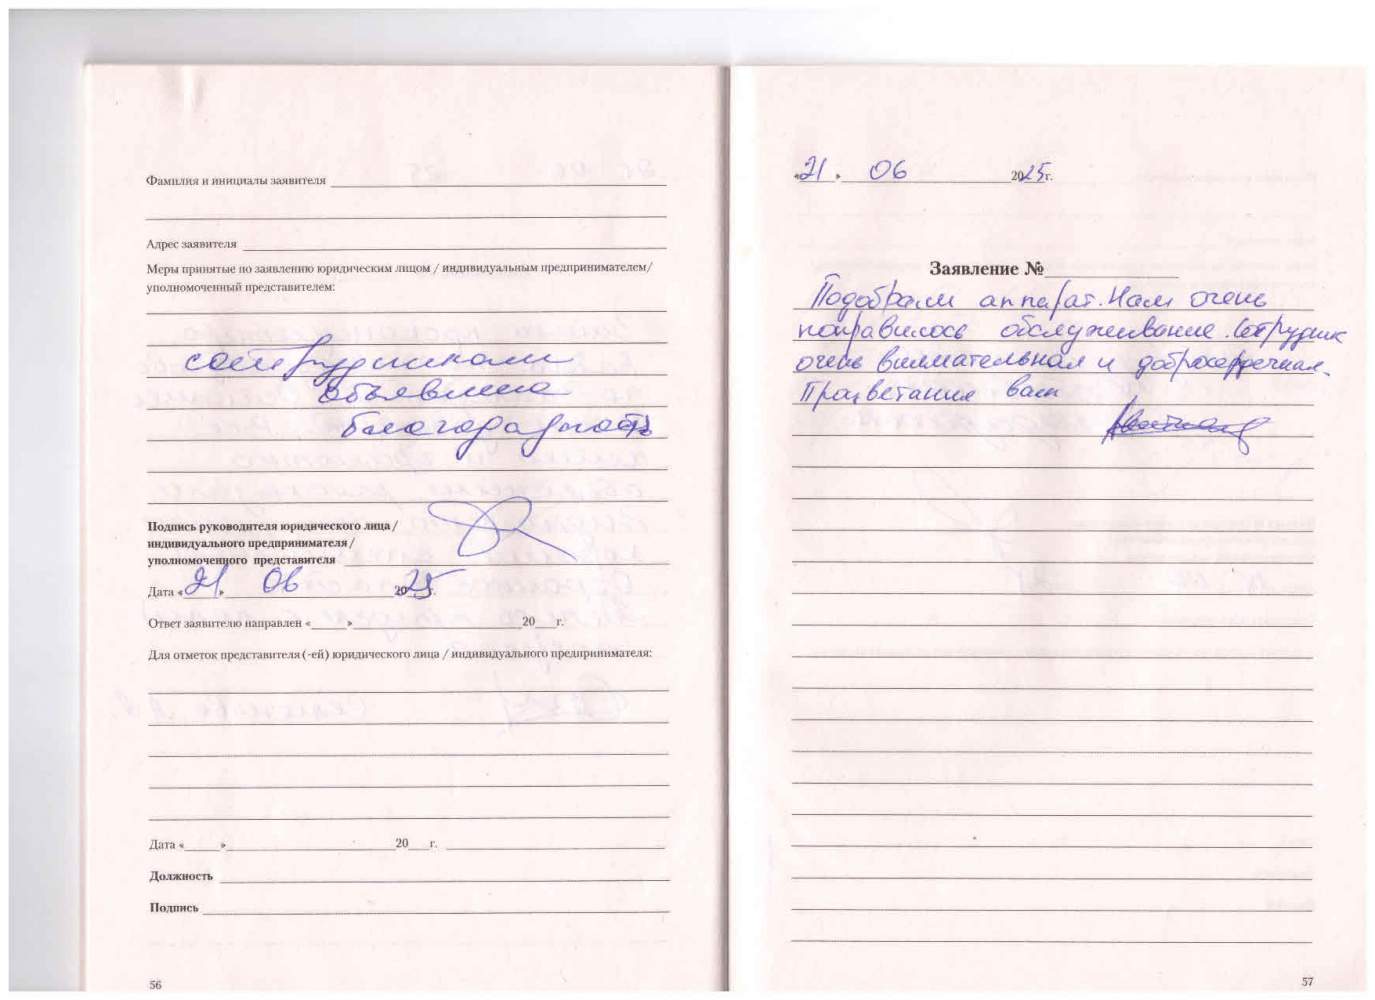 Фамилия и инициалы заявителя
Адрес заявителя
Меры принятые по заявлению юридическим лицом / индивидуальным предпринимателем/
уполномоченный представителем:
сотрудникам
объявлена
благодарность
Подпись руководителя юридического лица /
индивидуального предпринимателя /
уполномоченного представителя
Дата «21» 06 2025г.
Ответ заявителю направлен «_____»_____20___г.
Для отметок представителя (-ей) юридического лица / индивидуального предпринимателя:
Дата «_____»_____20___г.
Должность
Подпись
56
«21» 06 2025г.
Заявление №
Подобрали аппарат. Нам очень
понравилось обслуживание. Сотрудник
очень внимательная и доброжелательная.
Процветания вам
57